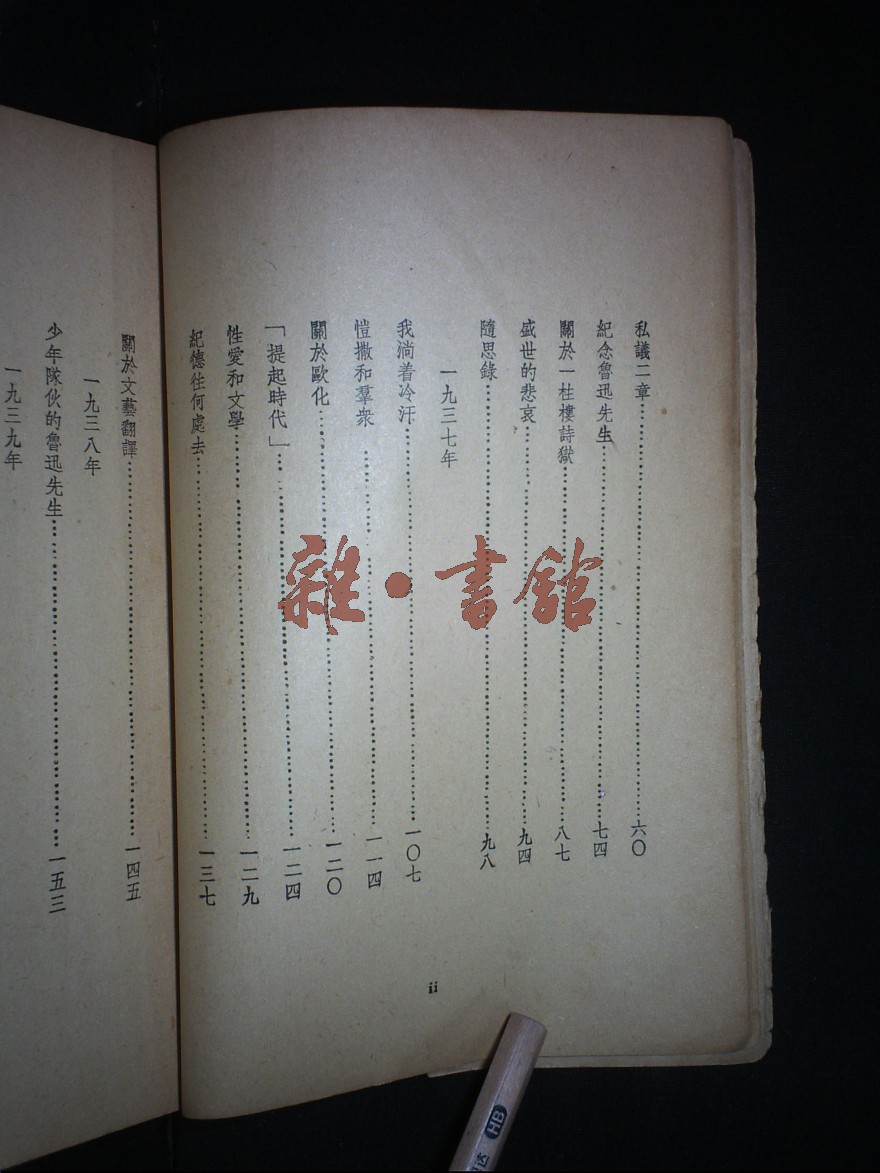 私議二章……六〇
紀念魯迅先生……七四
關於一柱樓詩獄……八七
盛世的悲哀……九四
隨思錄……九八
一九三七年
我淌着冷汗……一〇七
愷撒和羣衆……一一四
關於歐化……一二〇
「提起時代」……一二四
性愛和文學……一二九
紀德往何處去……一三七
ii
關於文藝翻譯……一四五
一九三八年
少年隊伙的魯迅先生……一五三
一九三九年
雜·書館
HB
达